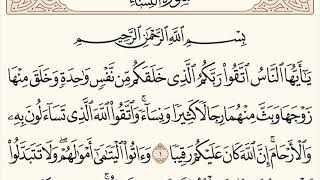 سُورَةُ النِّسَاءِ
بِسْمِ ٱللَّهِ ٱلرَّحْمَٰنِ ٱلرَّحِيمِ
يَٰٓأَيُّهَا ٱلنَّاسُ ٱتَّقُوا۟ رَبَّكُمُ ٱلَّذِى خَلَقَكُم مِّن نَّفْسٍ وَٰحِدَةٍ وَخَلَقَ مِنْهَا
زَوْجَهَا وَبَثَّ مِنْهُمَا رِجَالًا كَثِيرًا وَنِسَآءً ۚ وَٱتَّقُوا۟ ٱللَّهَ ٱلَّذِى تَسَآءَلُونَ بِهِۦ
وَٱلْأَرْحَامَ ۚ إِنَّ ٱللَّهَ كَانَ عَلَيْكُمْ رَقِيبًا ١ وَءَاتُوا۟ ٱلْيَتَٰمَىٰٓ أَمْوَٰلَهُمْ ۖ وَلَا تَتَبَدَّلُوا۟